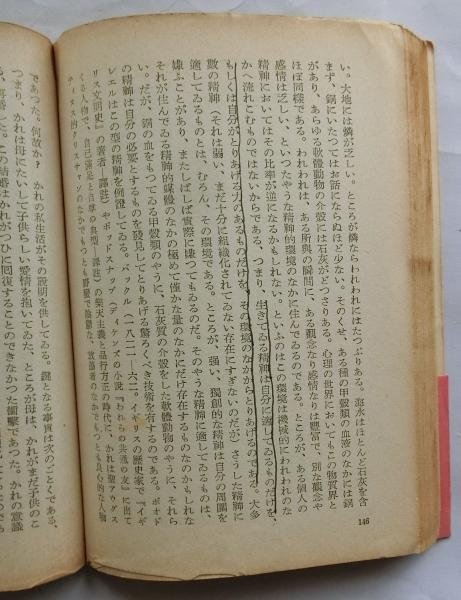 い。大地には燐が乏しい。ところが燐ならわれわれにはたつぷりある。海水はほとんど石灰を含
まず、銅にいたつてはお話にならぬほど少ない。そのくせ、ある種の甲殻類の血液のなかには銅
があり、あらゆる軟體動物の介殼には石灰がどつさりある。心理の世界においてもこの物質界と
ほぼ同樣である。われわれは、ある所與の瞬間に、ある觀念なり感情なりは豐富で、別な觀念や
感情は乏しい、といつたやうな精神的環境のなかに住んでゐるのである。ところが、ある個人の
精神においてはその比率が逆になるかもしれない、といふのはこの環境は機械的にわれわれのな
かへ流れこむものではないからである、つまり、生きてゐる精神は自分に適してゐるものだけを、
もしくは自分がとりあげる力のあるものだけを、その環境のなかからとりあげるのである。大多
數の精神（それは弱い、まだ十分に組織化されてゐない存在にすぎないのだが）さうした精神に
適してゐるものとは、むろん、その環境である。ところが、強い、獨創的な精神は自分の周圍を
嫌ふことがあり、またしばしば實際に嫌つてもゐるのだ。そのやうな精神に適してゐるものは、
それが住んでゐる精神的媒體のなかの極めて僅かな量のなかにだけ存在するものなのかもしれな
い。だが、銅の血をもつてゐる甲殻類のやうに、石灰質の介殼をした軟體動物のやうに、それら
の精神は自分の必要とするものを發見してとりあげる驚ろくべき技術を有するのである。ボオド
レエルはこの型の精神を例證してゐる。バックル（一八二一－六二。イギリスの歷史家で『イギ
リス文明史』の著者―譯註）やポッドスナップ（ディケンズの小說『われらの共通の友』に出て
くる人物で、自己滿足と自尊の典型―譯註）の樂天主義と品行方正の時代に、かれは聖アウグス
ティヌス的クリスチャンのなかでもつとも野蠻で陰鬱な、放蕩者のなかでもつとも良心的な人物
であつた。何故か？　かれの私生活がその說明を供してゐる。鍵となる事實は次のごとくである、
つまり、かれは母にたいして子供らしい愛情を抱いてゐた、ところが母は、かれがまだ子供のこ
ろ、再婚した。この結婚はかれがつひに回復することのできなかつた衝擊であつた。かれの意識
146